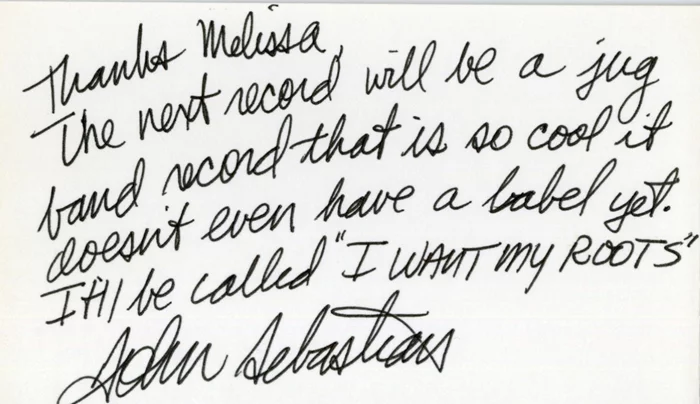 Thanks Melissa,
The next record will be a jug
band record that is so cool it
doesn't even have a label yet.
It'll be called "I WANT MY ROOTS"
John Sebastian